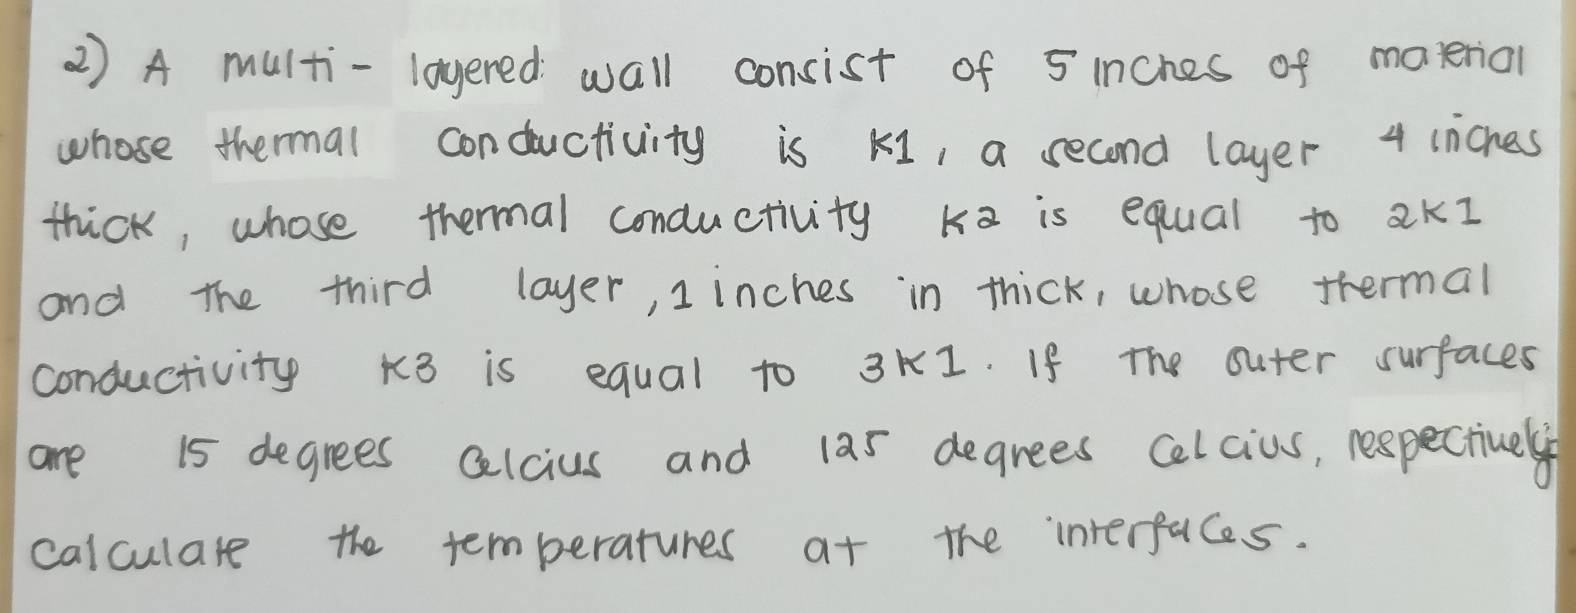 2) A multi-layered: wall consist of 5 inches of material
whose thermal conductivity is K1, a second layer 4 inches
thick, whose thermal conductivity K2 is equal to 2K1
and the third layer, 1 inches in thick, whose thermal
conductivity K3 is equal to 3K1. If the outer surfaces
are 15 degrees Celcius and 125 degrees Celcius, respectively
calculate the temperatures at the interfaces.